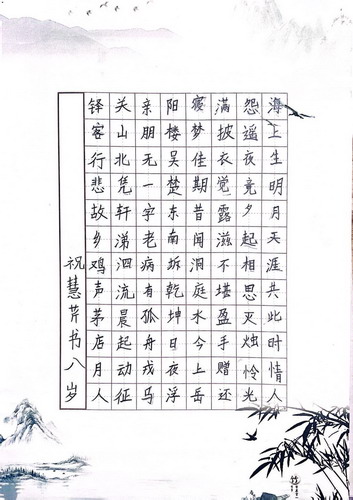 海上生明月天涯共此时情人
怨遥夜竟夕起相思灭烛怜光
满披衣觉露滋不堪盈手赠还
寝梦佳期昔闻洞庭水今上岳
阳楼吴楚东南坼乾坤日夜浮
亲朋无一字老病有孤舟戎马
关山北凭轩涕泗流晨起动征
铎客行悲故乡鸡声茅店月人
祝慧芹书八岁